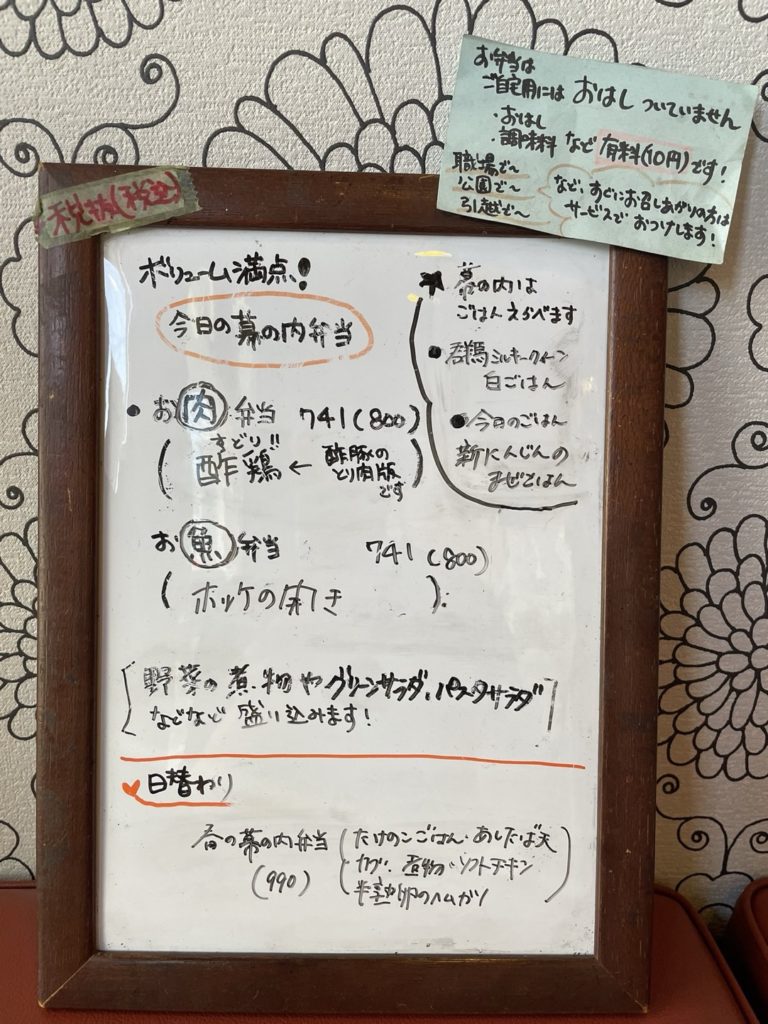 お弁当は
ご自宅用には おはし ついていません
・おはし
・調味料 など 有料(10円)です!
職場で〜
公園で〜
引越で〜
など、すぐにお召しあがりの方は
サービスで おつけします!
税抜(税込)
ボリューム満点!
今日の幕の内弁当
• お肉弁当 741(800)
すどり!!
(酢鶏 ← 酢豚の
とり肉版
です)
お魚弁当 741(800)
(ホッケの開き)
★ 幕の内は
ごはんえらべます
● 群馬ミルキークイーン
白ごはん
● 今日のごはん
新にんじんの
まぜごはん
[野菜の煮物やグリーンサラダ、パスタサラダ
などなど 盛り込みます!]
♥日替わり
春の幕の内弁当
(990)
(たけのこごはん・あしたば天
カブ・煮物・ソフトチキン
半熟卵のハムカツ)